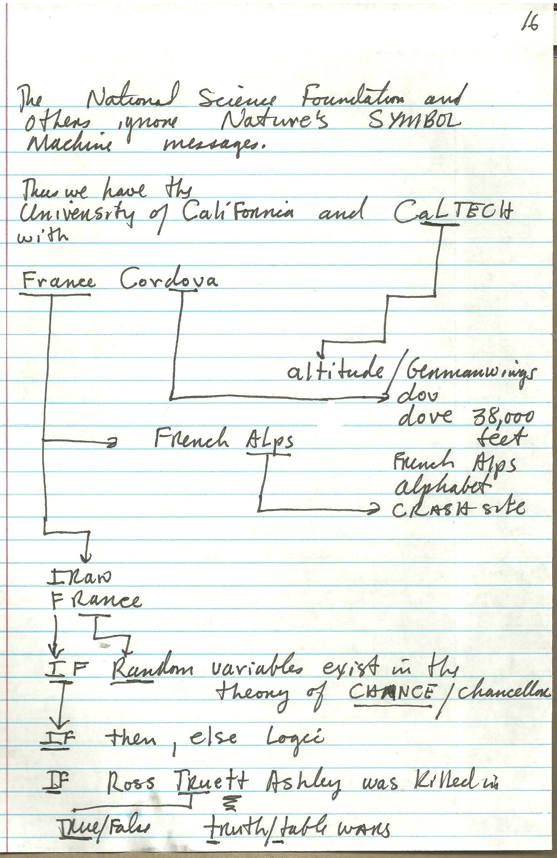 16
The National Science Foundation and
others ignore Nature's SYMBOL
Machine messages.
Thus we have the
University of California and CaLTECH
with
France Cordova
altitude / Germanwings
dov
dove 38,000
feet
French Alps
French Alps
alphabet
CRASH site
IRan
FRance
IF Random variables exist in the
theory of CHANCE/chancellor
IF then, else Logic
IF Ross Truett Ashley was killed in
True/False truth/table wars